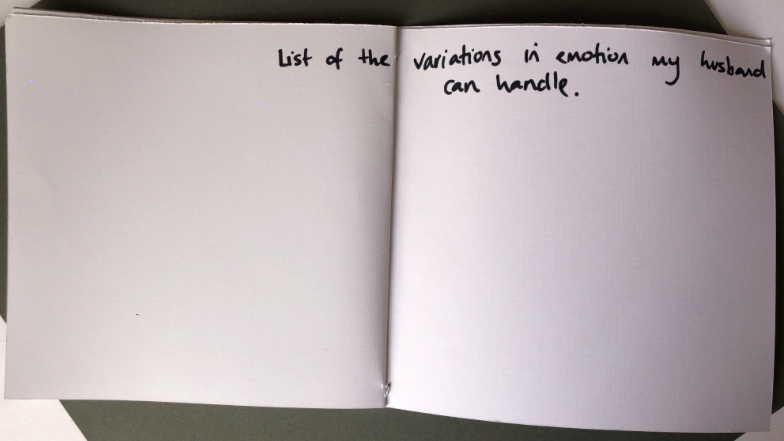 List of the variations in emotion my husband
can handle.